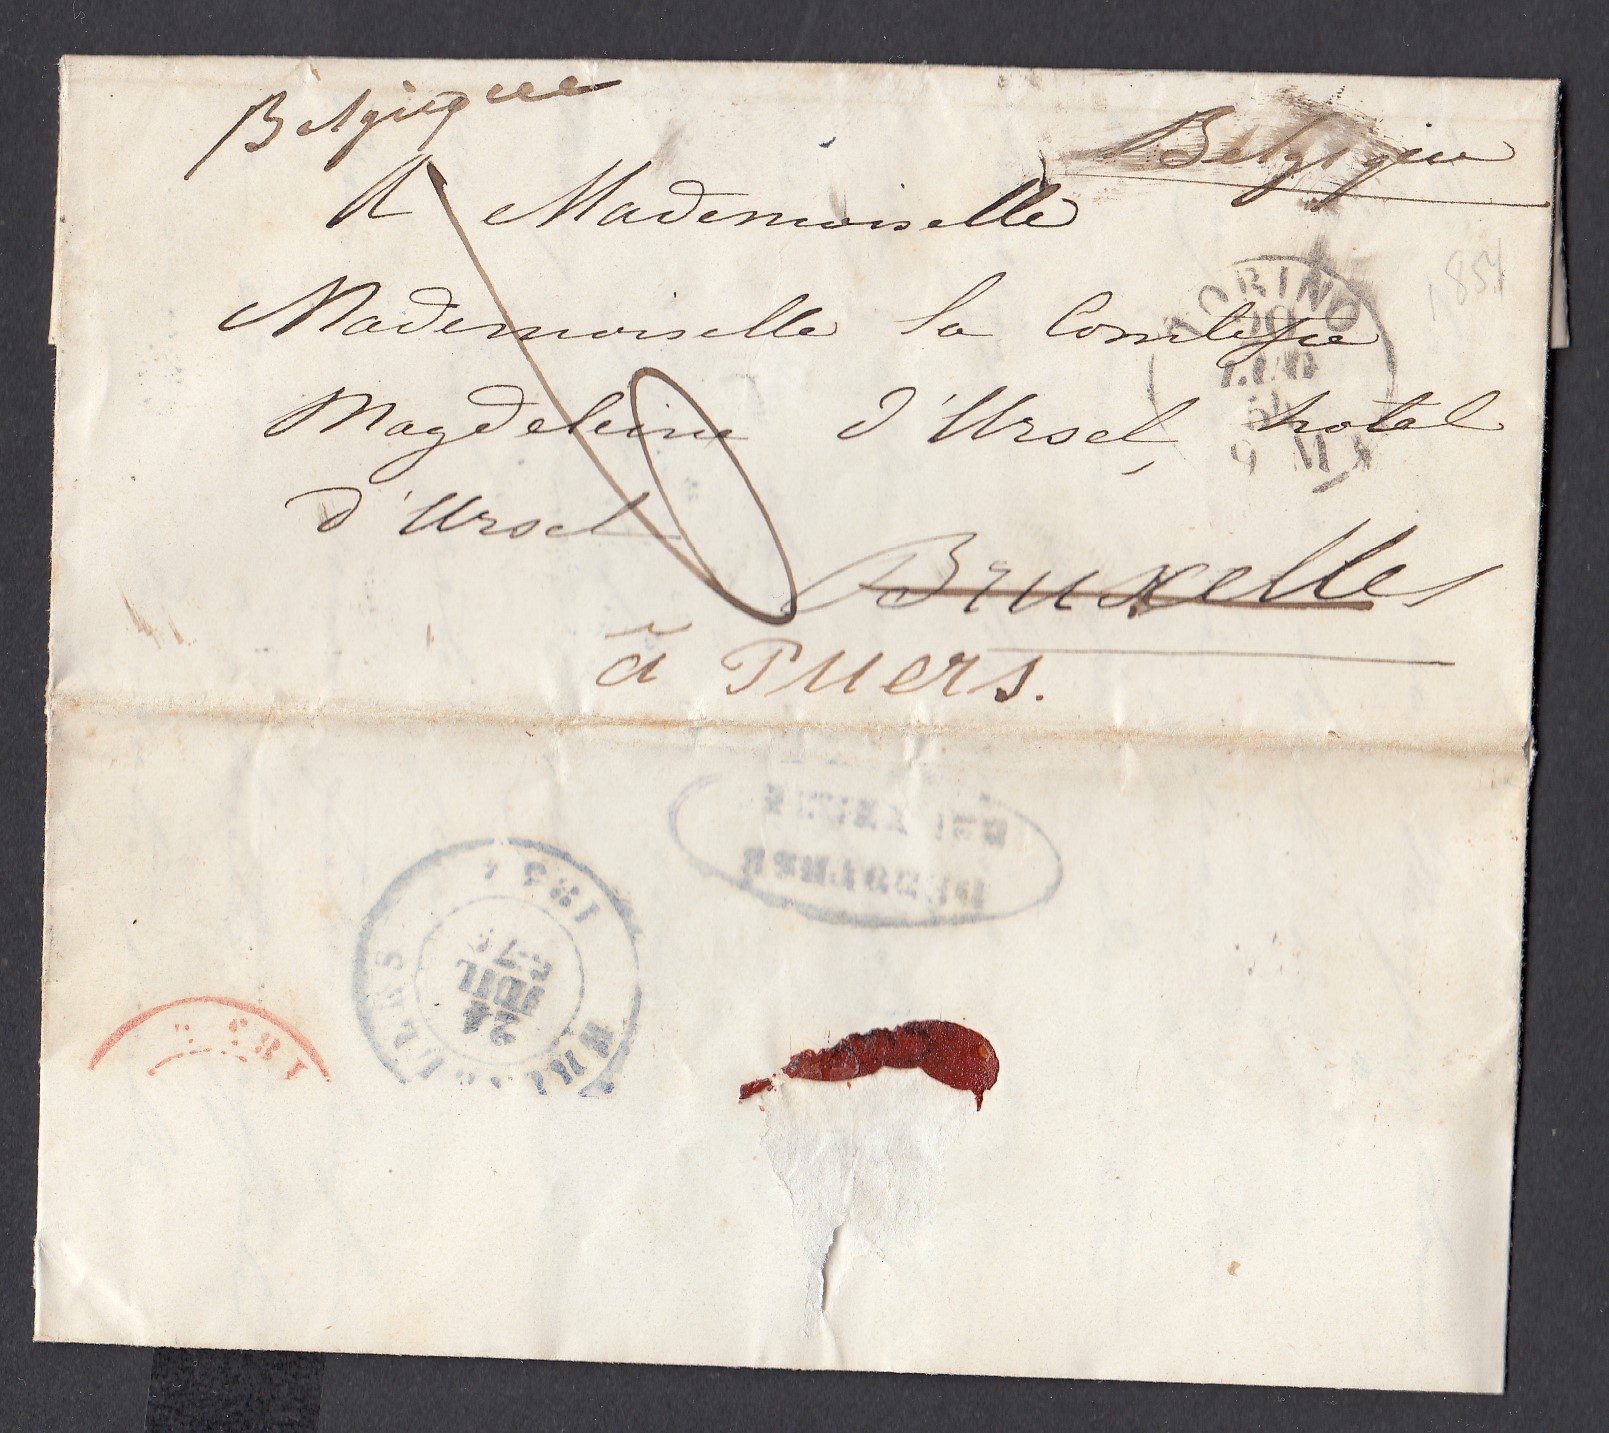 Belgique
Belgique
A Mademoiselle
Mademoiselle la Comtesse
Magdeleine d'Ursel, hotel
d'Ursel Bruxelles
à Puers.
1854
TORINO
20
LUG
54
9 M
BRUXELLES
24
JUIL
1854
185